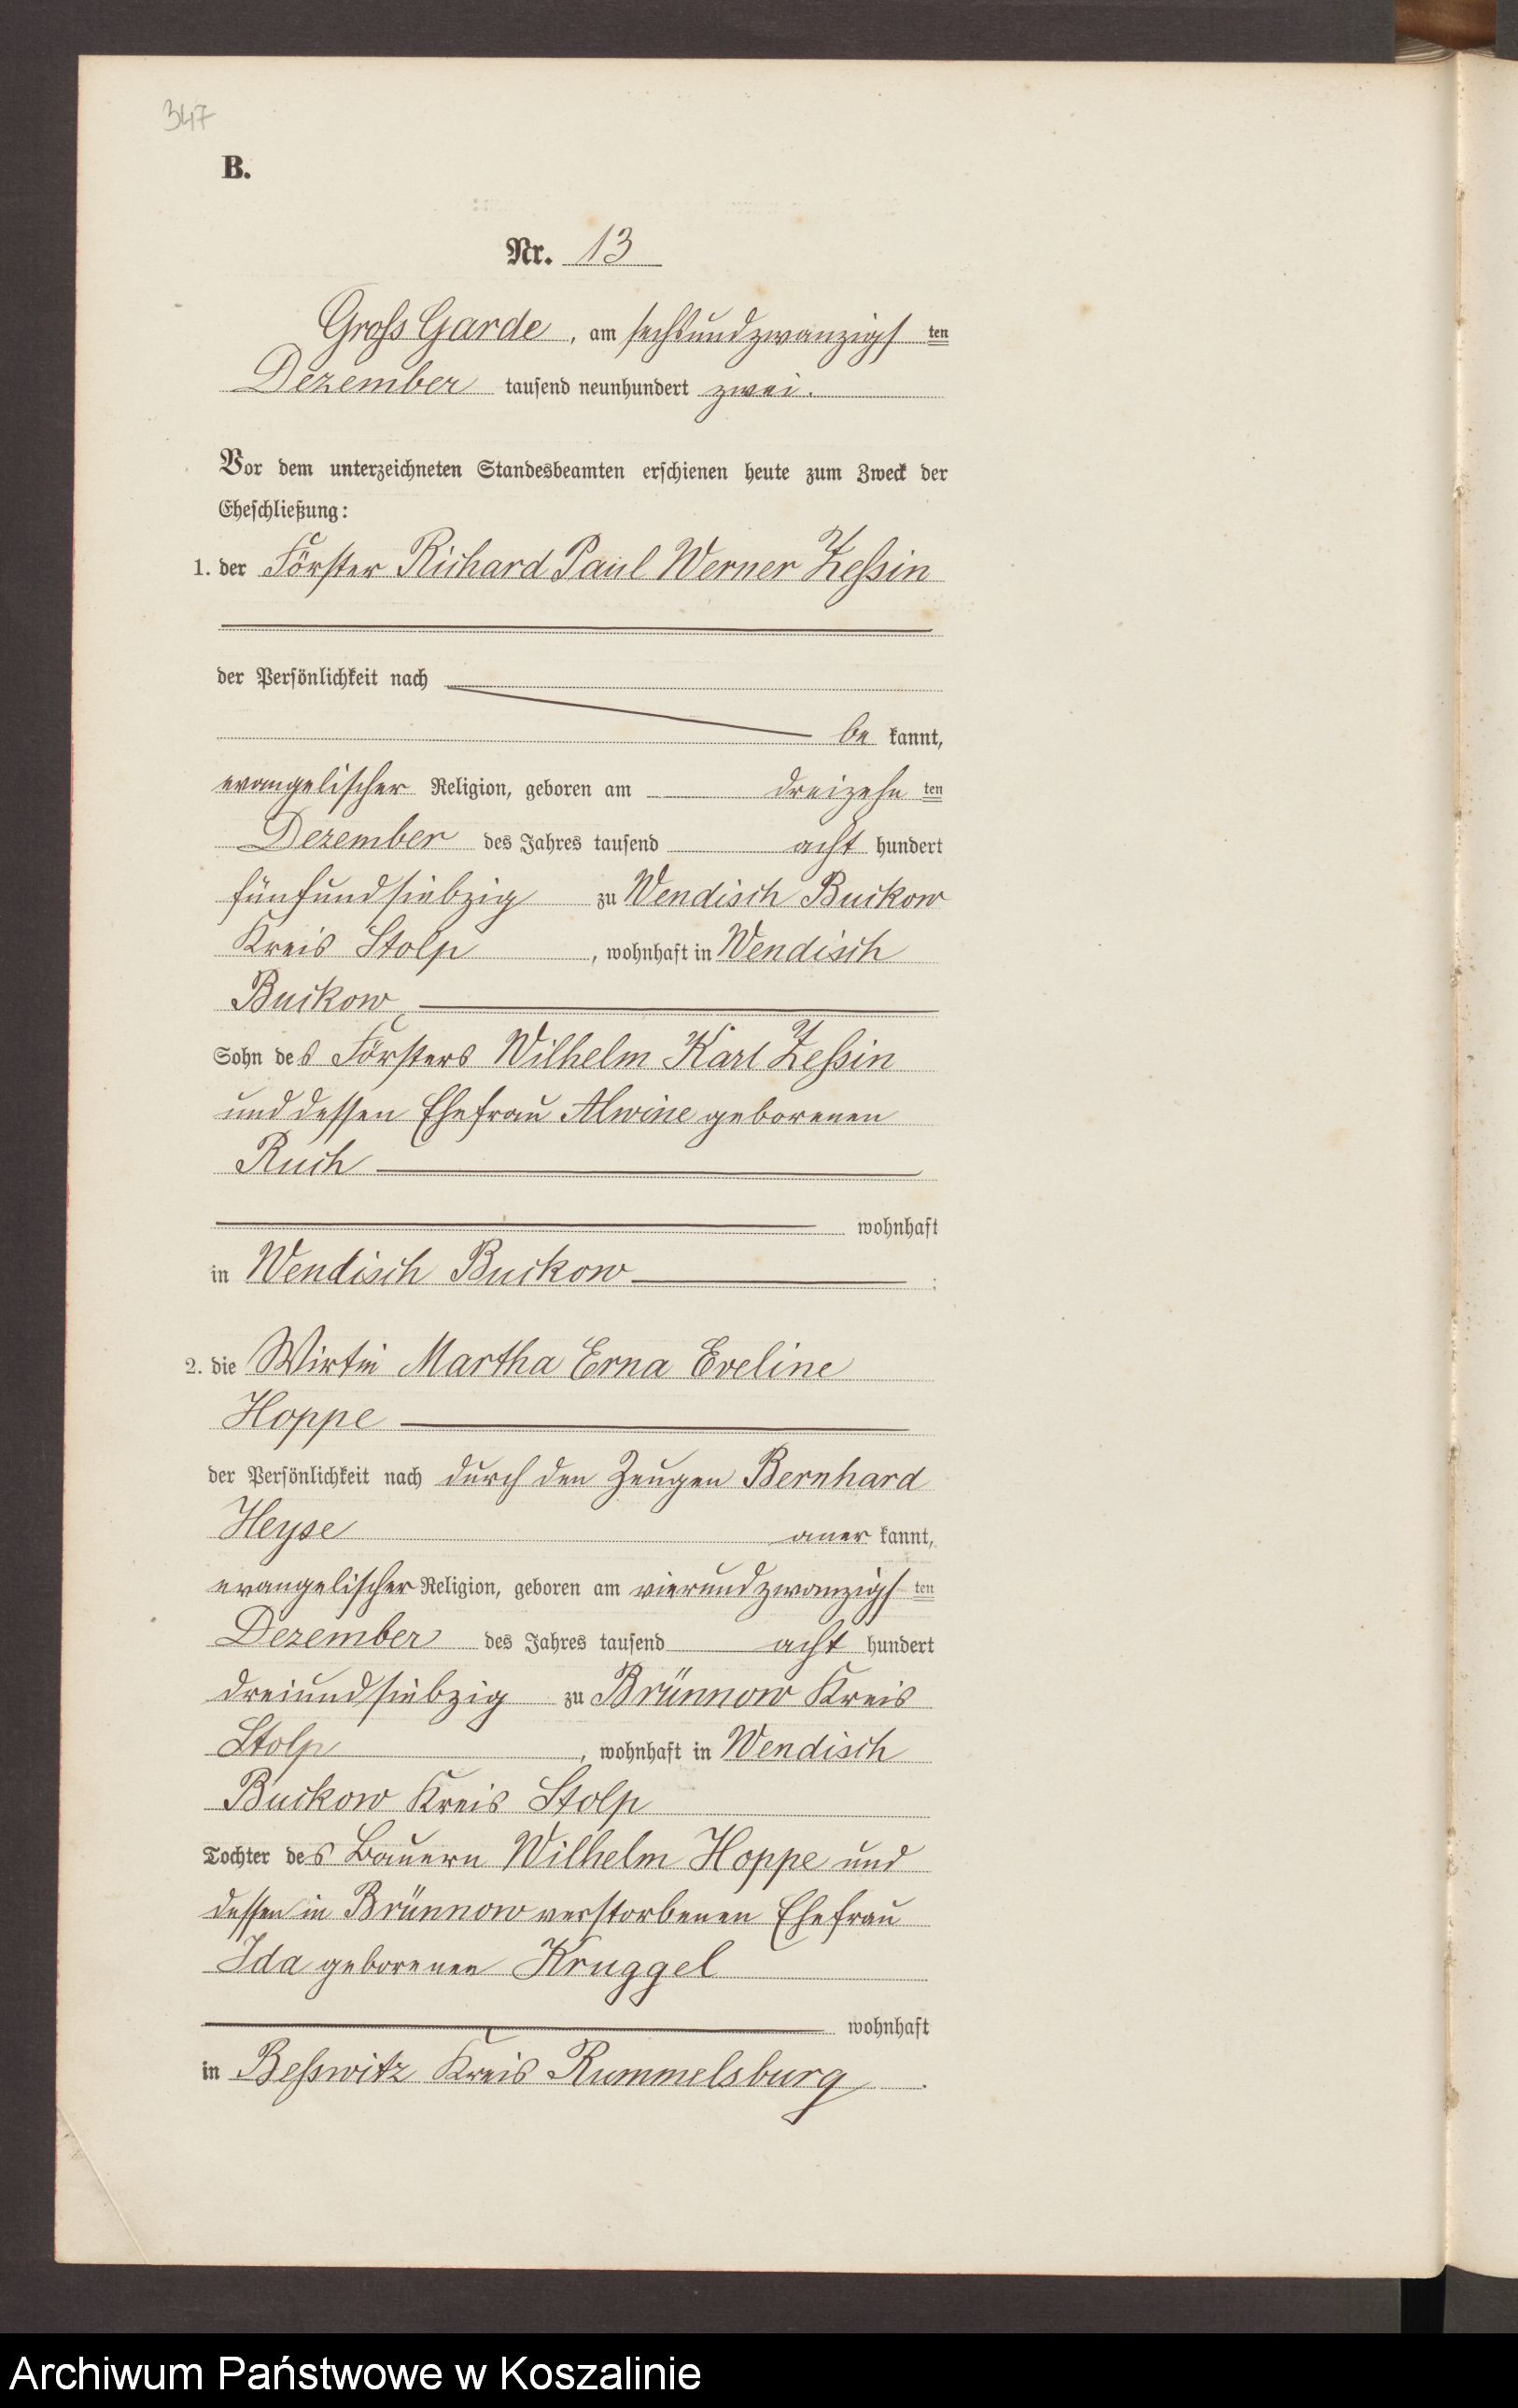 347
B.
Nr. 13
Groß Garde, am sechsundzwanzigs ten
Dezember tausend neunhundert zwei.
Vor dem unterzeichneten Standesbeamten erschienen heute zum Zweck der
Eheschließung:
1. der Förster Richard Paul Werner Zeßin
der Persönlichkeit nach
be kannt,
evangelischer Religion, geboren am dreizehn ten
Dezember des Jahres tausend acht hundert
fünfundsiebzig zu Wendisch Buckow
Kreis Stolp, wohnhaft in Wendisch
Buckow,
Sohn des Försters Wilhelm Karl Zeßin
und dessen Ehefrau Alwine geborenen
Ruch
wohnhaft
in Wendisch Buckow ;
2. die Wirtin Martha Erna Eveline
Hoppe
der Persönlichkeit nach durch den Zeugen Bernhard
Heyse aner kannt,
evangelischer Religion, geboren am vierundzwanzigs ten
Dezember des Jahres tausend acht hundert
dreiundsiebzig zu Brünnow Kreis
Stolp, wohnhaft in Wendisch
Buckow Kreis Stolp
Tochter des Bauern Wilhelm Hoppe und
dessen in Brünnow verstorbenen Ehefrau
Ida geborenen Kruggel
wohnhaft
in Beßwitz Kreis Rummelsburg.
Archiwum Państwowe w Koszalinie